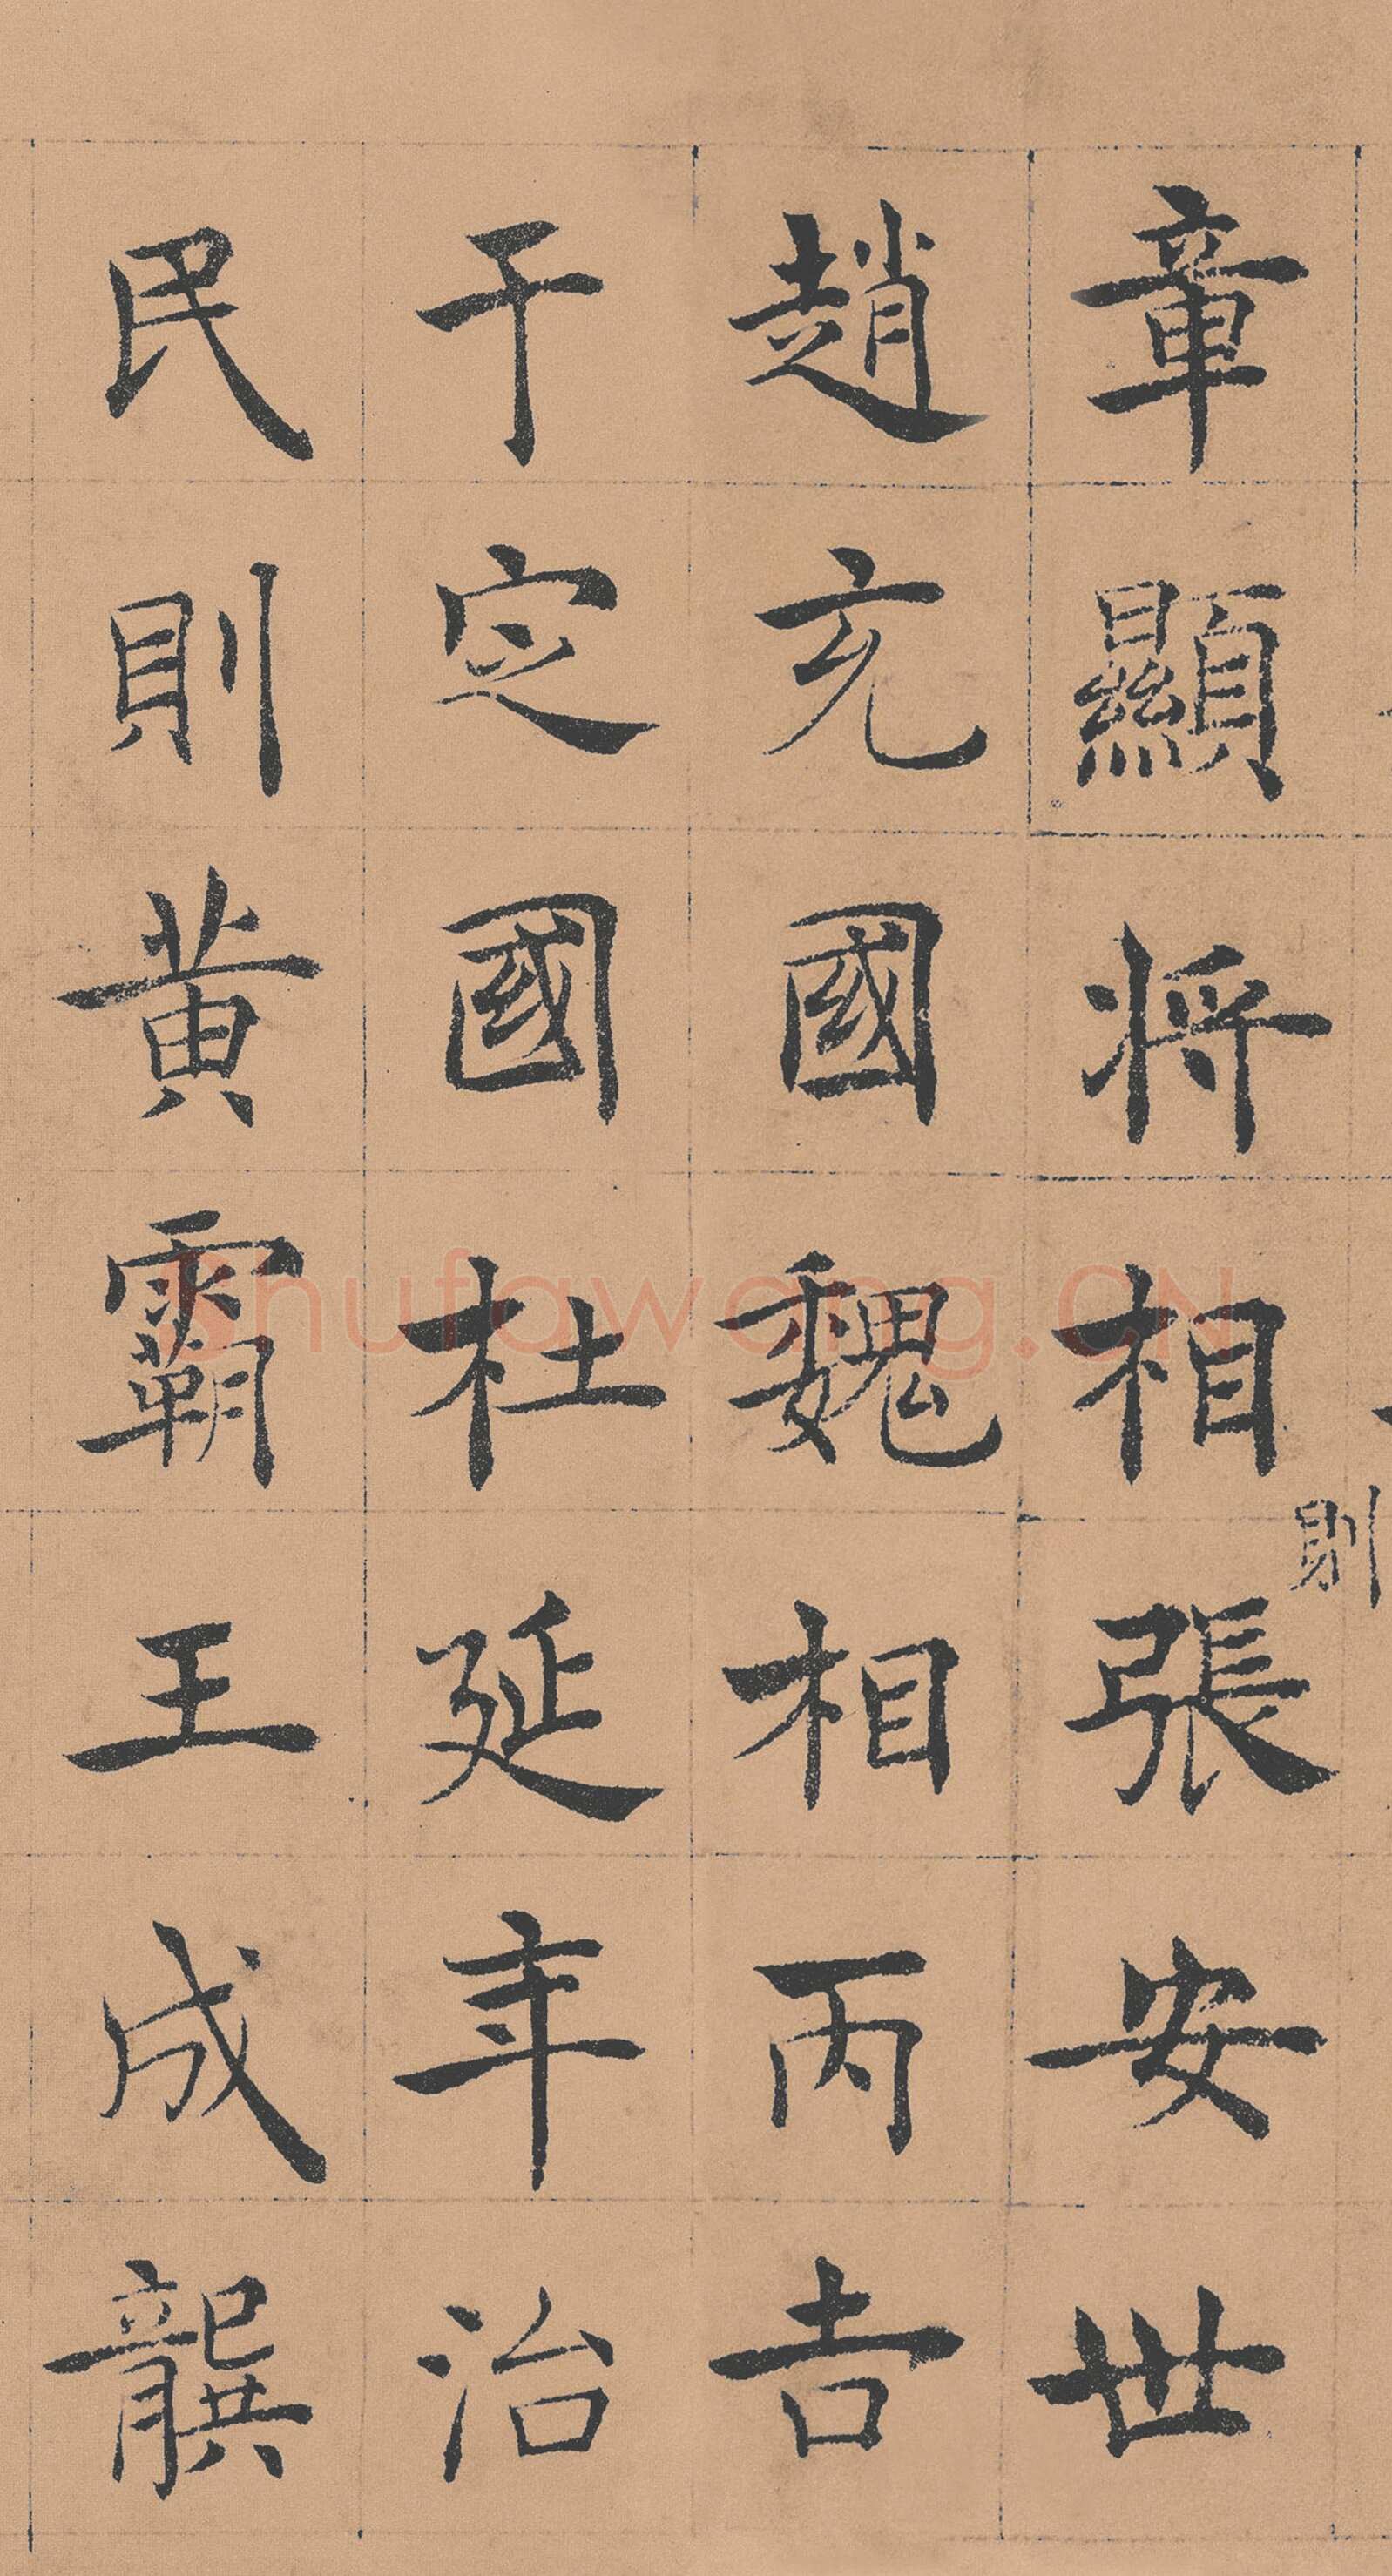 章顯將相張安世
則
趙充國魏相丙吉
于定國杜延年治
民則黃霸王成龔
shufawang.CN